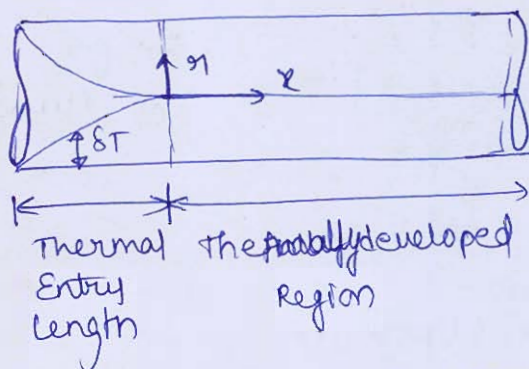 r
x
δT
Thermal
Entry
Length
Thermally developed
Region